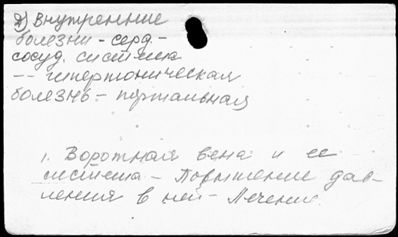 2) Внутренние
болезни - серд-
сосуд. система
-- гипертоническая
болезнь - портальная
1. Воротная вена и ее
система - Повышение дав-
ления в ней - Лечение.